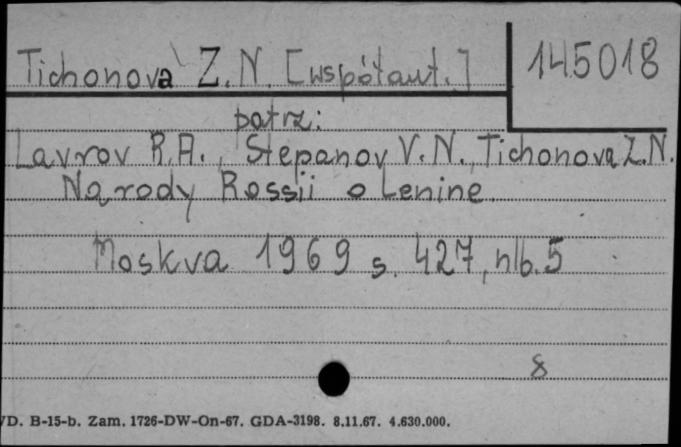 Tichonova Z.N. [współaut.] 145018
patrz:
Lavrov R.A., Stepanov V.N., Tichonova Z.N.
Narody Rossii o Lenine.
Moskva 1969 s. 427, nlb. 5
8
VD. B-15-b. Zam. 1726-DW-On-67. GDA-3198. 8.11.67. 4.630.000.